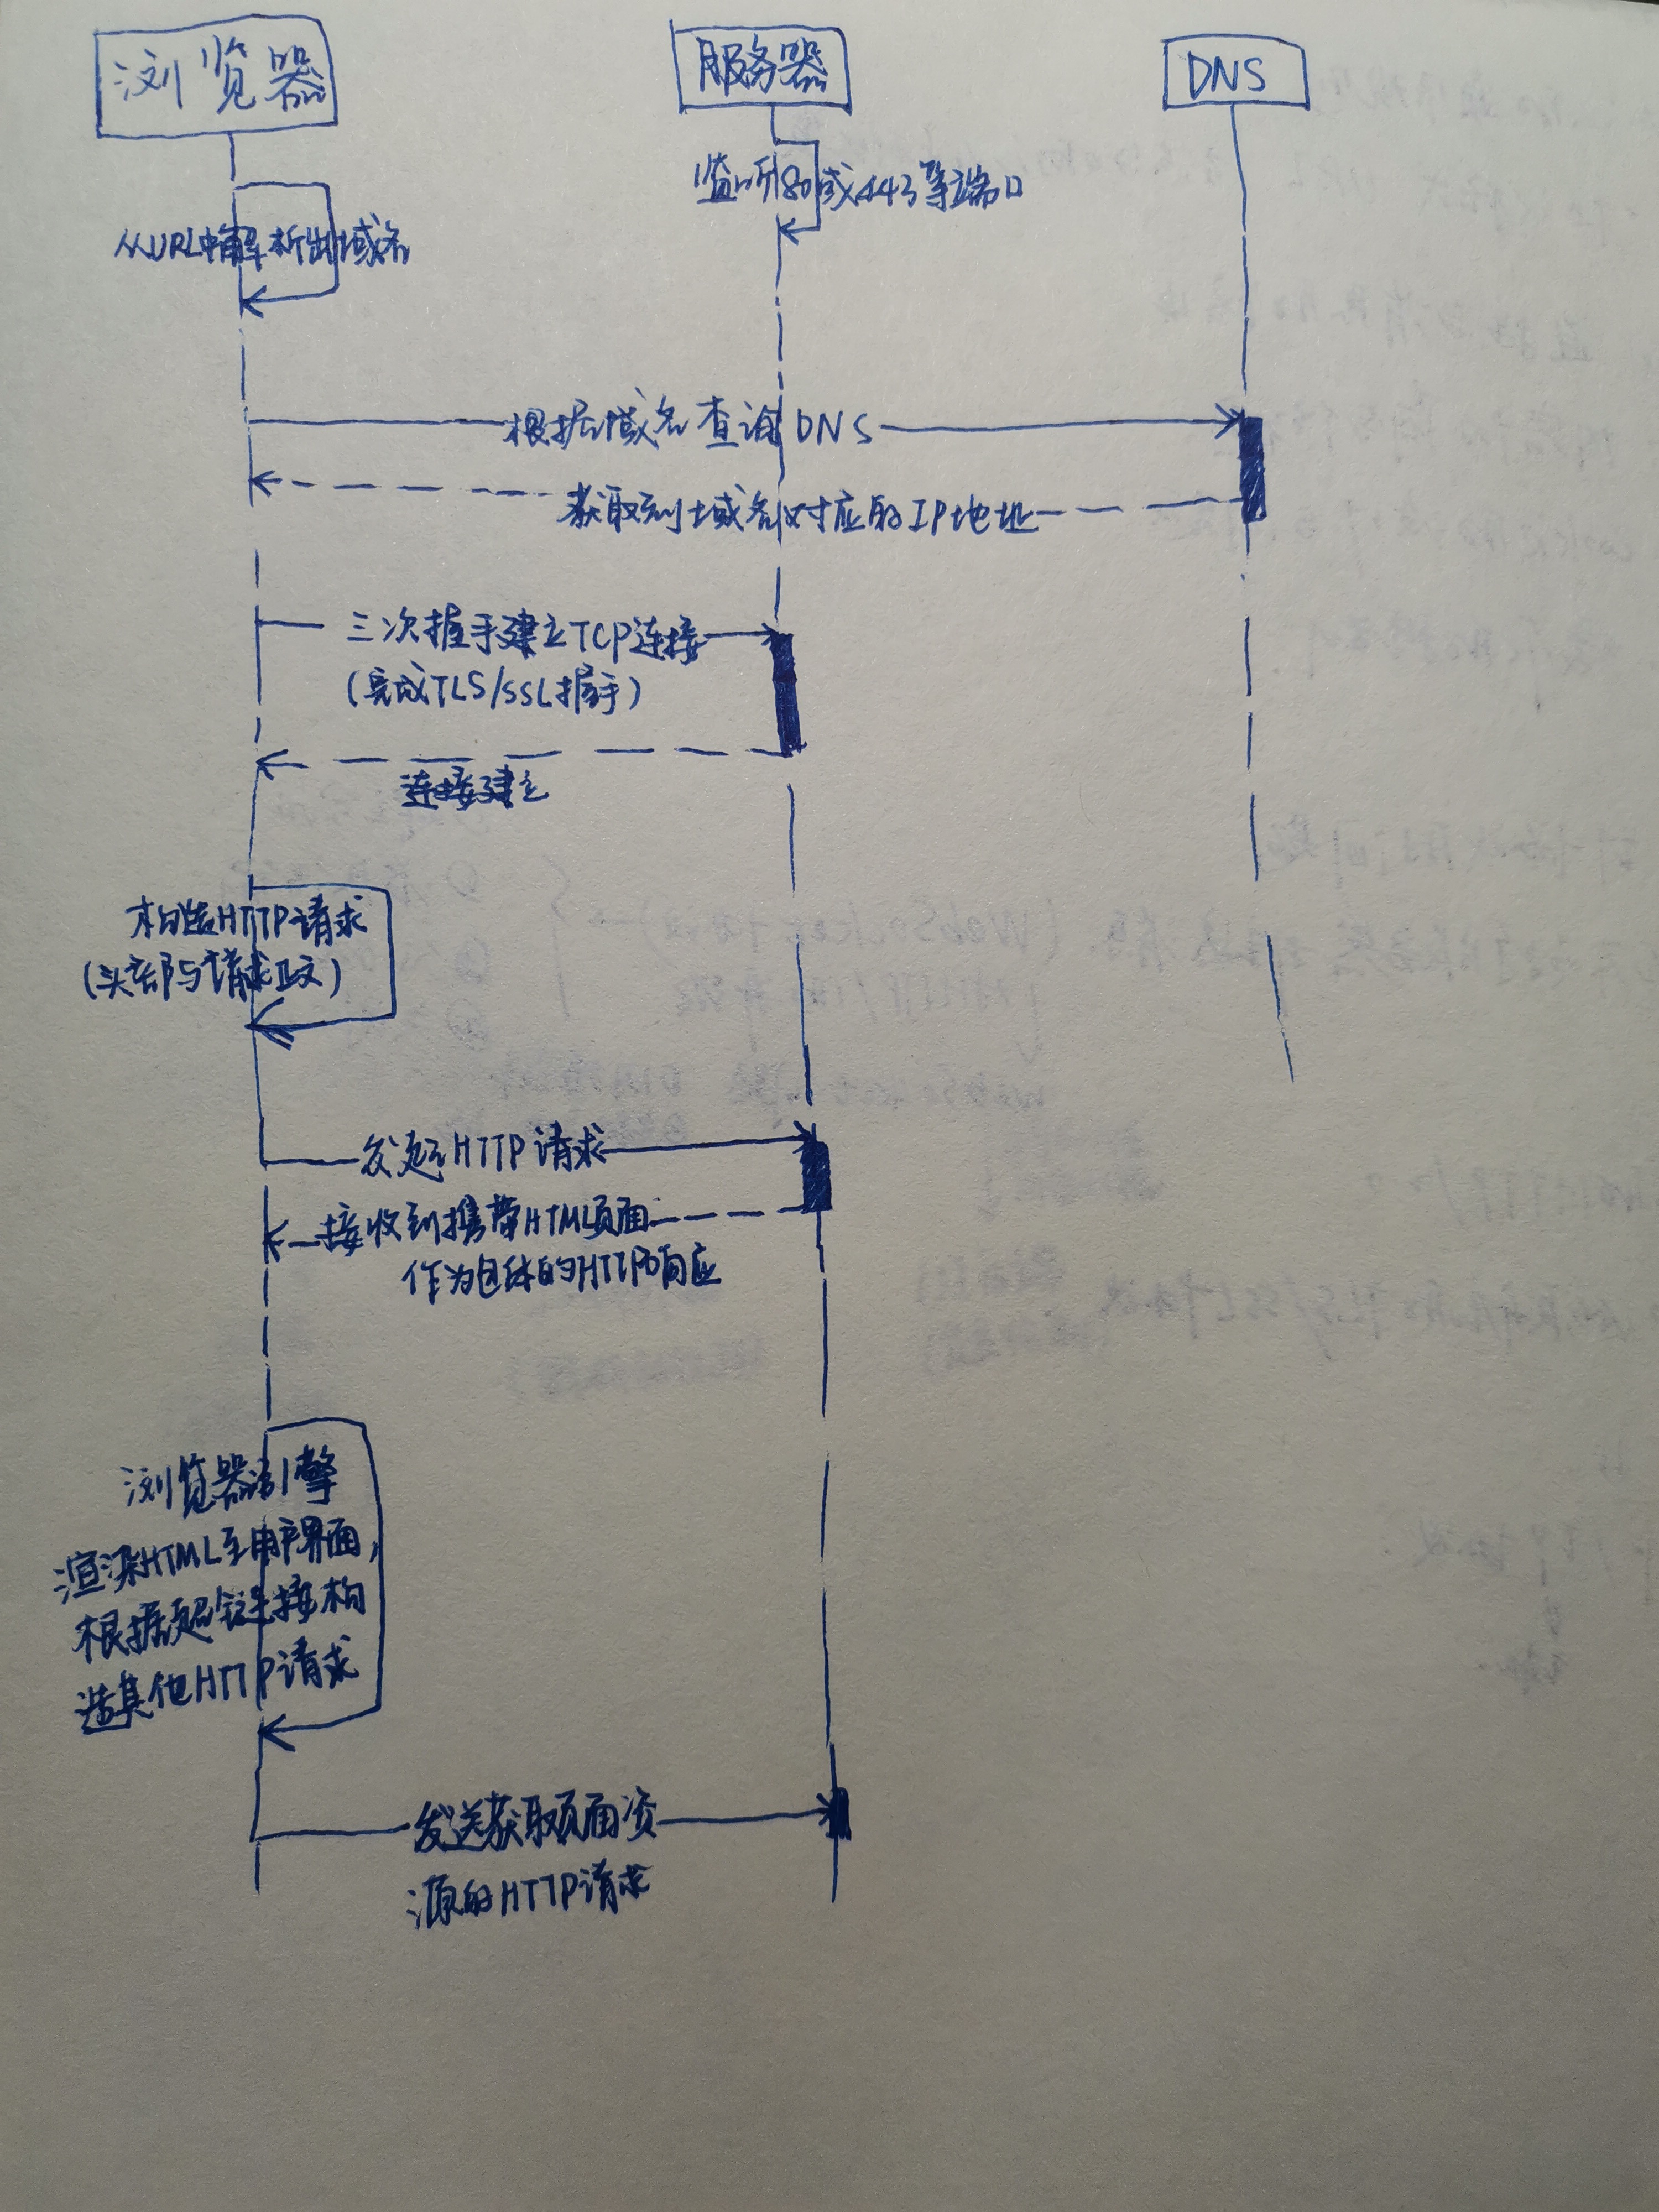 浏览器
服务器
DNS
监听80或443等端口
从URL中解析出域名
根据域名查询DNS
获取到域名对应的IP地址
三次握手建立TCP连接
(完成TLS/SSL握手)
连接建立
构造HTTP请求
(头部与请求正文)
发起HTTP请求
接收到携带HTML页面
作为包体的HTTP响应
浏览器引擎
渲染HTML至用户界面,
根据超链接构
造其他HTTP请求
发送获取页面资
源的HTTP请求